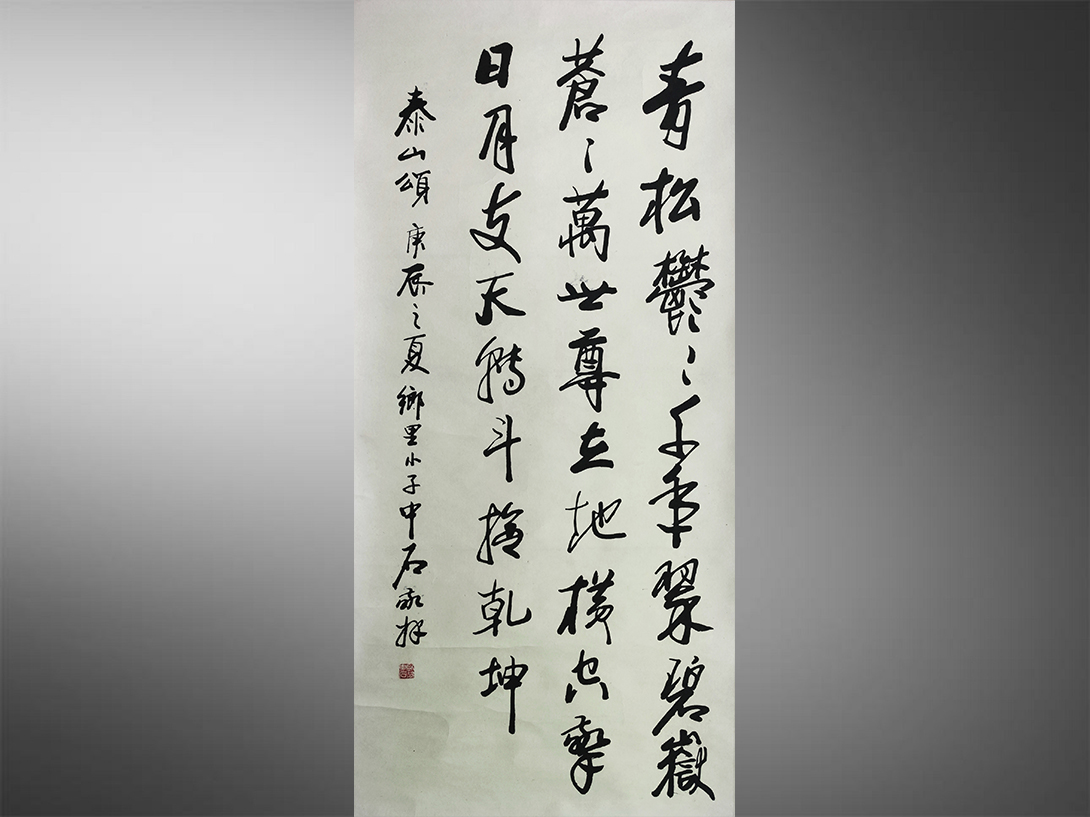 青松鬱〻千年翠碧嶽
蒼〻萬世尊立地橫空擎
日月支天轉斗乾坤
泰山頌 庚辰之夏 鄉里小子中石